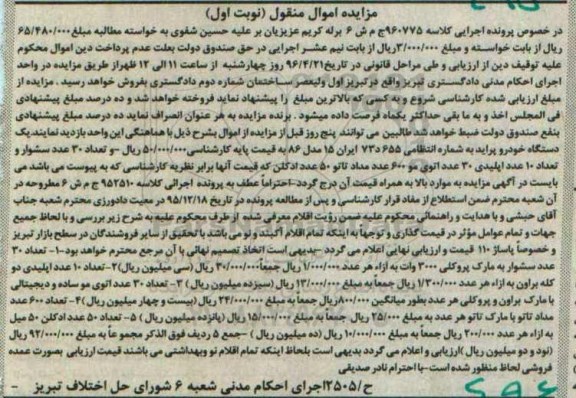 مزایده اموال منقول (نوبت اول)
در خصوص پرونده اجرایی کلاسه ۹۶۰۷۷۵ج م ش ۶ برله کریم عزیزیان بر علیه حسین شفوی به خواسته مطالبه مبلغ ۶۵/۴۸۰/۰۰۰
ریال از بابت خواسته و مبلغ ۳/۰۰۰/۰۰۰ریال از بابت نیم عشر اجرایی در حق صندوق دولت بعلت عدم پرداخت دین اموال محکوم
علیه توقیف دین از ارزیابی و طی مراحل قانونی در تاریخ۹۶/۴/۲۱ روز چهارشنبه از ساعت ۱۱ الی ۱۲ ظهراز طریق مزایده در واحد
اجرای احکام مدنی دادگستری تبریز واقع درتبریز اول ولیعصر ساختمان شماره دوم دادگستری بفروش خواهد رسید . مزایده از
مبلغ ارزیابی شده کارشناسی شروع و به کسی که بالاترین مبلغ را پیشنهاد نماید فروخته خواهد شد و ده درصد مبلغ پیشنهادی
فی المجلس اخذ و به ما بقی حداکثر یکماه فرصت داده میشود . برنده مزایده به هر عنوان انصراف نماید ده درصد مبلغ پیشنهادی
بنفع صندوق دولت ضبط خواهد شد طالبین می توانند پنج روز قبل از مزایده از اموال بشرح ذیل با هماهنگی این واحد بازدید نمایند.یک
دستگاه خودرو پراید به شماره انتظامی ۶۵۵ ۷۷۳ ایران ۱۵ مدل ۸۶ به قیمت پایه کارشناسی ۵۰/۰۰۰/۰۰۰ ریال -و تعداد ۳۰ عدد سشوار و
تعداد ۱۰ عدد اپلیدی ۳۰ عدد اتوی مو ۶۰۰ عدد مداد تاتو ۵۰ عدد ادکلن که قیمت آنها برابر نظریه کارشناسی که به پیوست می باشد می
بایست در آگهی مزایده به موارد بالا به همراه قیمت آن درج گردد -احتراماً عطف به پرونده اجرائی کلاسه ۹۵۲۵۱۰ ج م ش ۶ مطروحه در
آن شعبه محترم ضمن استطلاع از مفاد قرار کارشناسی و پس از مطالعه پرونده در تاریخ ۹۵/۱۲/۱۸ در معیت دادورزی محترم شعبه جناب
آقای حبشی و با هدایت و راهنمائی محکوم علیه ضمن رؤیت اقلام معرفی شده از طرف محکوم علیه به شرح زیر بررسی و با لحاظ جمیع
جهات و تمام عوامل مؤثر در قیمت گذاری و توجهاً به اینکه تمام اقلام آکبند و نو می باشد با تحقیق از سایر فروشندگان در سطح بازار تبریز
و خصوصاً پاساژ ۱۱۰ قیمت و ارزیابی نهایی اعلام می گردد -بدیهی است اتخاذ تصمیم نهائی با آن مرجع محترم خواهد بود.-۱- تعداد ۳۰
عدد سشوار به مارک پروکلی ۳۰۰۰ وات به ازاء هر عدد ۱/۰۰۰/۰۰۰ ریال جمعاً۳۰/۰۰۰/۰۰۰ ریال (سی میلیون ریال)۲-تعداد ۱۰ عدد اپلیدی دو
کله براون به ازاء هر عدد ۱/۳۰۰/۰۰۰ ریال جمعاً به مبلغ ۱۳/۰۰۰/۰۰۰ ریال (سیزده میلیون ریال) ۳- تعداد ۳۰ عدد اتوی مو ساده و دیجیتالی
با مارک براون و پروکلی هر عدد بطور میانگین ۸۰۰/۰۰۰ریال جمعاً به مبلغ ۲۴/۰۰۰/۰۰۰ ریال (بیست و چهار میلیون ریال)۴- تعداد ۶۰۰ عدد
مداد تاتو با مارک تاتو هر عدد به مبلغ ۲۵/۰۰۰ ریال جمعاً به مبلغ ۱۵/۰۰۰/۰۰۰ ریال (پانزده میلیون ریال) ۵- تعداد ۵۰ عدد ادکلن ۵۰ میل
به ازاء هر عدد ۲۰۰/۰۰۰ ریال جمعاً به مبلغ ۱۰/۰۰۰/۰۰۰ ریال (ده میلیون ریال) -جمع ۵ ردیف فوق الذکر مجموعا به مبلغ ۹۲/۰۰۰/۰۰۰ ریال
(نود و دو میلیون ریال )ارزیابی و اعلام می گردد بدیهی است بلحاظ اینکه تمام اقلام نو وبهداشتی می باشند قیمت ارزیابی بصورت عمده
فروشی لحاظ منظور شده است-با احترام نادر صدیقی
ح/۲۵۰۵اجرای احکام مدنی شعبه ۶ شورای حل اختلاف تبریز